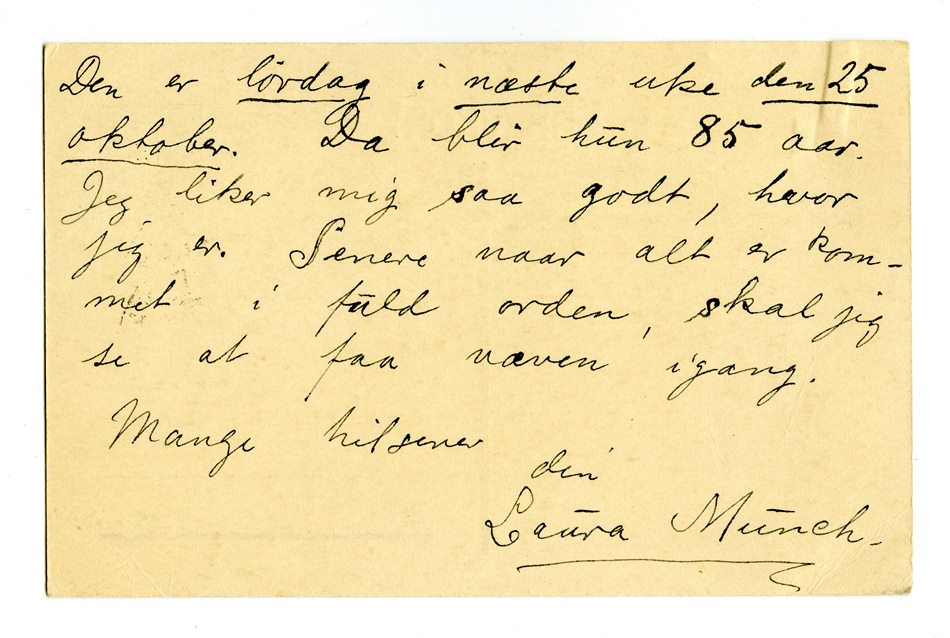 Den er lördag i næste uke den 25
oktober. Da blir hun 85 aar.
Jeg liker mig saa godt, hvor
jeg er. Senere naar alt er kom-
met i fuld orden, skal jeg
se at faa væven igang.
Mange hilsener
din
Laura Munch.